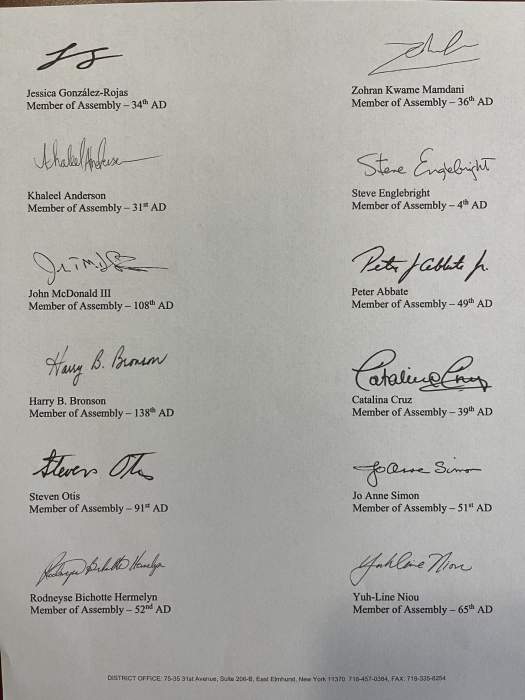 Jessica González-Rojas
Member of Assembly – 34th AD
Zohran Kwame Mamdani
Member of Assembly – 36th AD
Khaleel Anderson
Khaleel Anderson
Member of Assembly – 31st AD
Steve Englebright
Steve Englebright
Member of Assembly – 4th AD
John McDonald III
Member of Assembly – 108th AD
Peter J Abbate Jr.
Peter Abbate
Member of Assembly – 49th AD
Harry B. Bronson
Harry B. Bronson
Member of Assembly – 138th AD
Catalina Cruz
Catalina Cruz
Member of Assembly – 39th AD
Steven Otis
Steven Otis
Member of Assembly – 91st AD
Jo Anne Simon
Jo Anne Simon
Member of Assembly – 51st AD
Rodneyse Bichotte Hermelyn
Rodneyse Bichotte Hermelyn
Member of Assembly – 52nd AD
Yuh-Line Niou
Yuh-Line Niou
Member of Assembly – 65th AD
DISTRICT OFFICE: 75-35 31st Avenue, Suite 206-B, East Elmhurst, New York 11370 718-457-0384, FAX: 718-335-8254